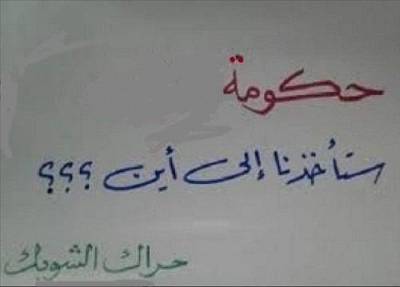 حكومة
ستأخذنا إلى أين ؟؟؟
حراك الشوبك